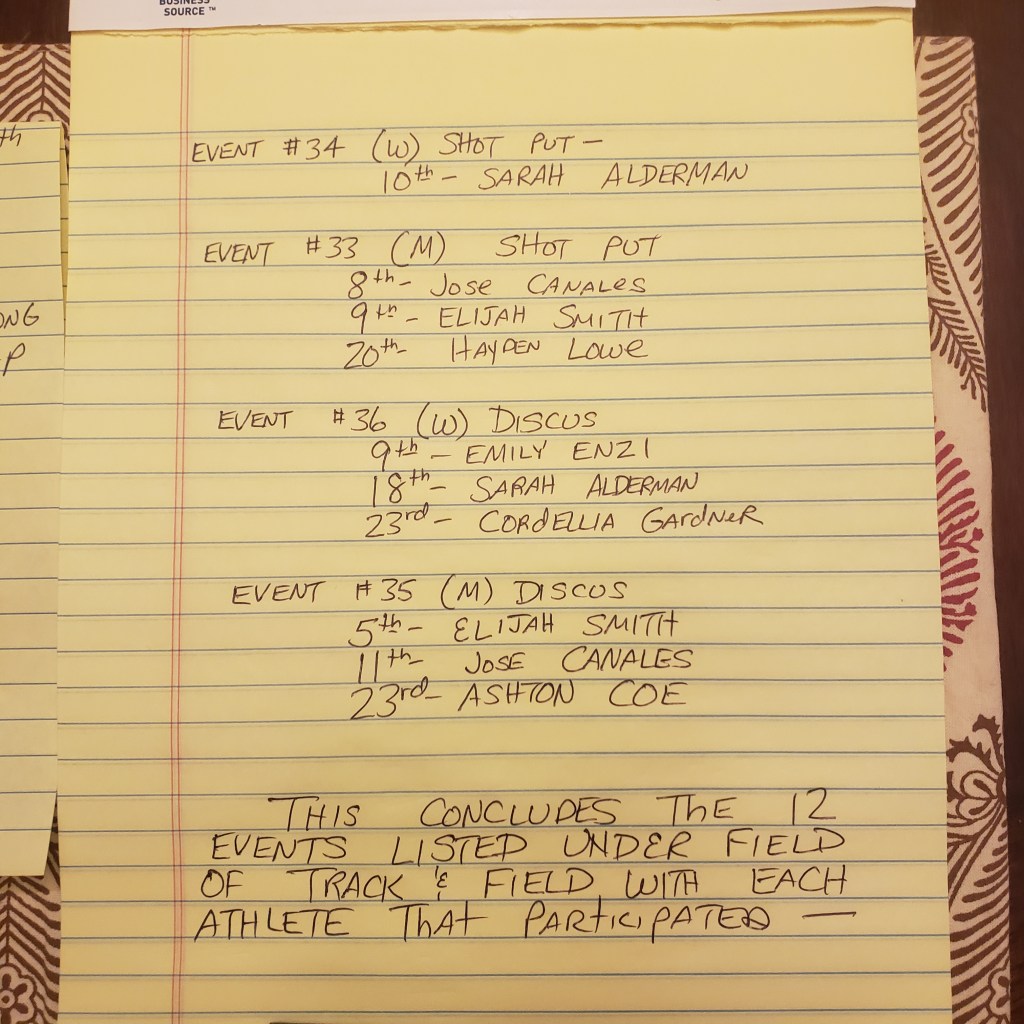 BUSINESS
SOURCE ™
th
ONG
P
EVENT #34 (W) SHOT PUT —
10th - SARAH ALDERMAN
EVENT #33 (M) SHOT PUT
8th - Jose CANALES
9th - ELIJAH SMITH
20th - HAYDEN LOWE
EVENT #36 (W) DISCUS
9th - EMILY ENZI
18th - SARAH ALDERMAN
23rd - CORDELLIA GARdNeR
EVENT #35 (M) DISCUS
5th - ELIJAH SMITH
11th - JOSE CANALES
23rd - ASHTON COE
THIS CONCLUDES THE 12
EVENTS LISTED UNDER FIELD
OF TRACK & FIELD WITH EACH
ATHLETE THAT PARTICIPATED —